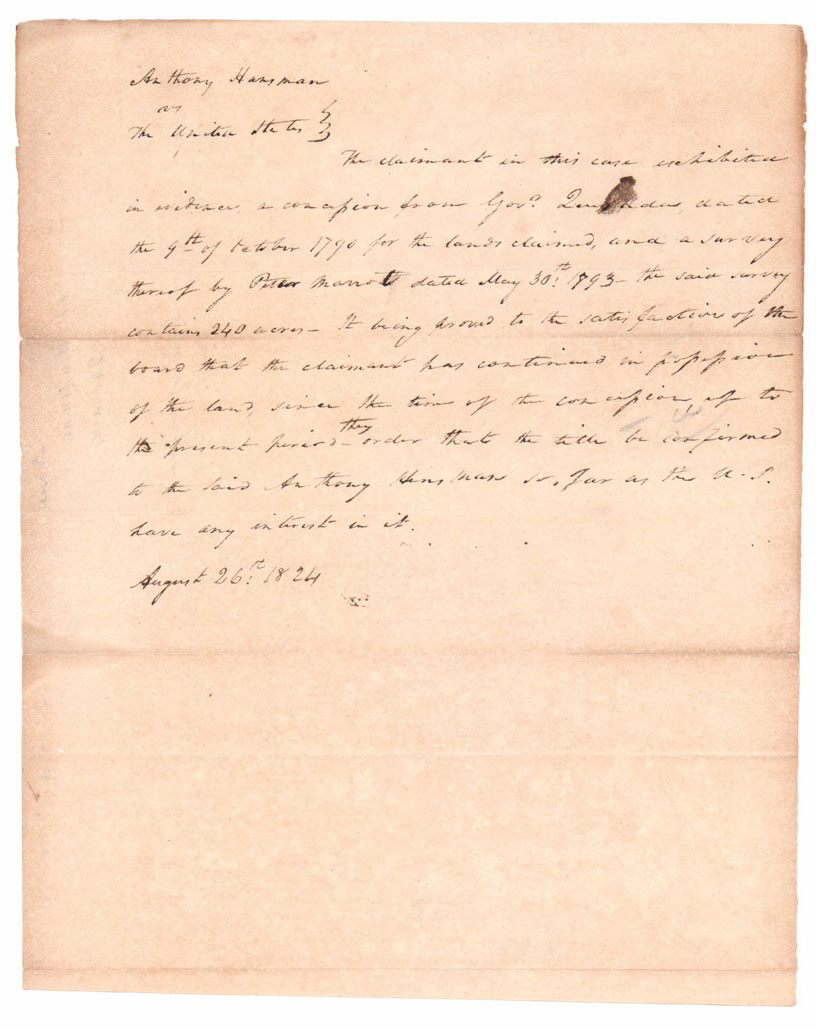 Anthony Hansman
vs
The United States
The claimant in this case exhibited
in evidence, a concession from Govr. dated
the 9th of October 1790 for the lands claimed, and a survey
thereof by Peter Marrot dated May 30th 1793 - the said survey
contains 240 acres - It being proved to the satisfaction of the
board that the claimant has continued in possession
of the land, since the time of the concession, up to
the present period - they order that the title be confirmed
to the said Anthony Hensman so, far as the U. S.
have any interest in it.
August 26th 1824